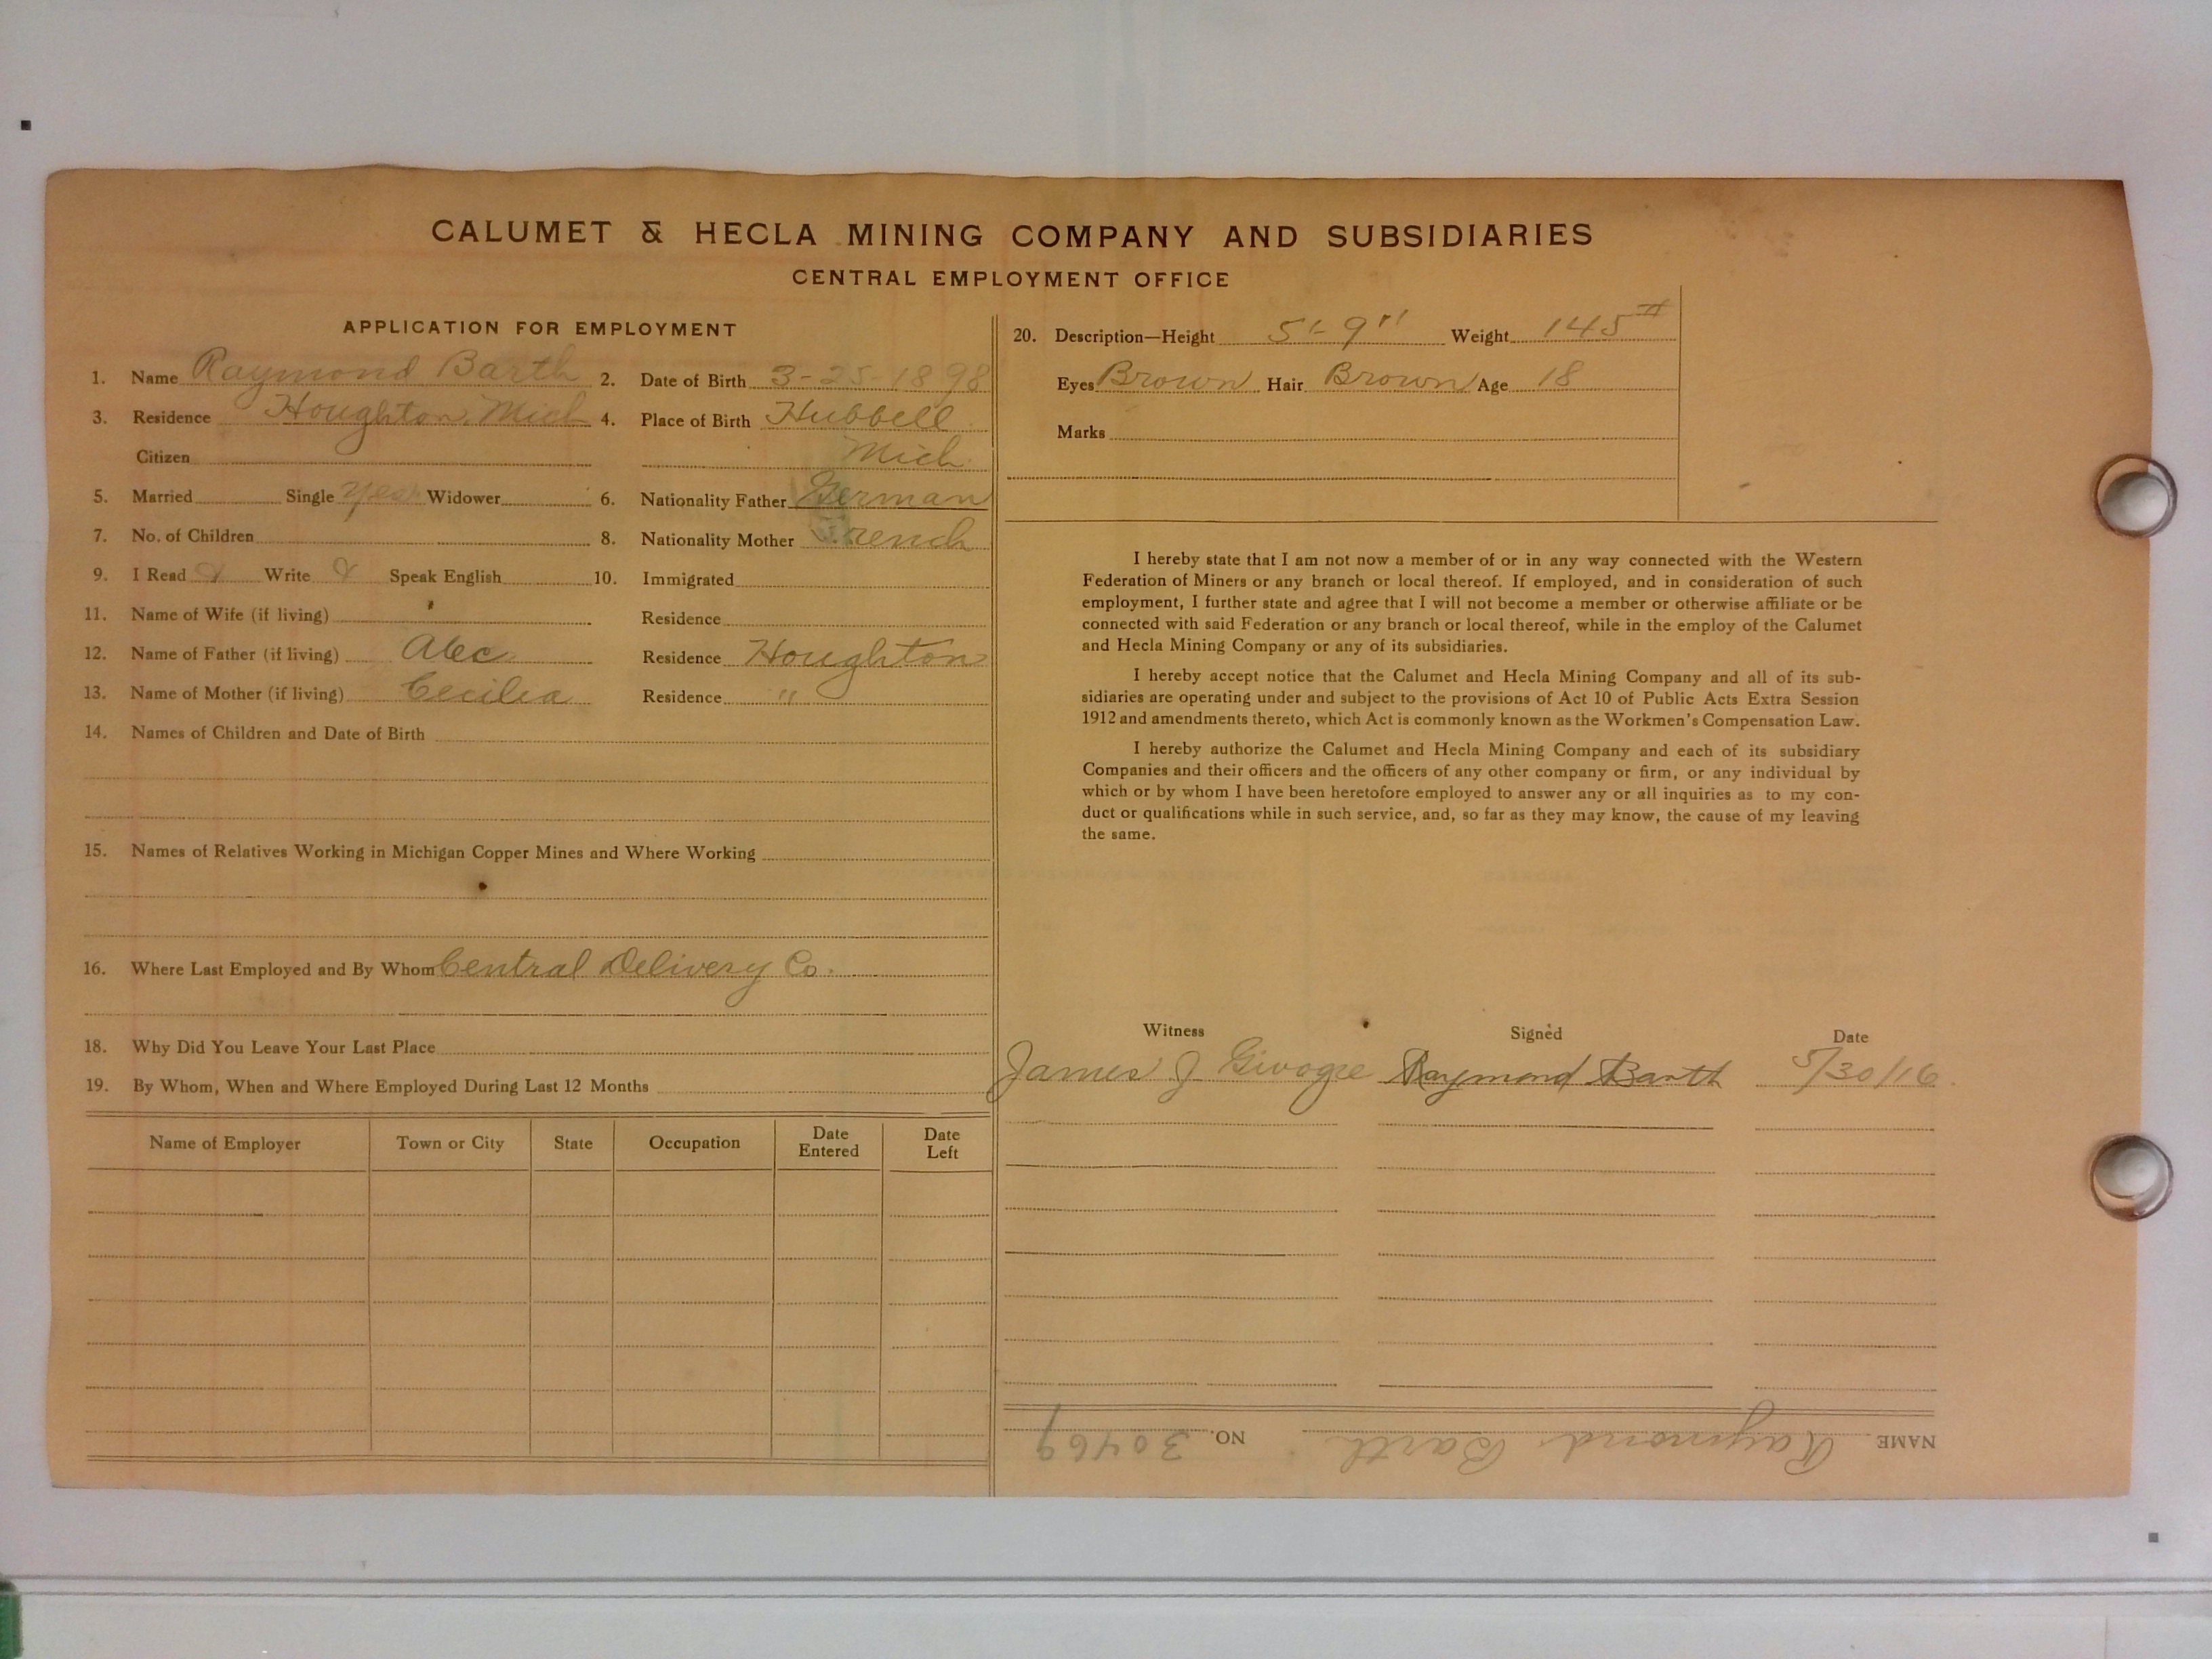 CALUMET & HECLA MINING COMPANY AND SUBSIDIARIES
CENTRAL EMPLOYMENT OFFICE
APPLICATION FOR EMPLOYMENT
1. Name Raymond Barth 2. Date of Birth 3-25-1898
3. Residence Houghton, Mich 4. Place of Birth Hubbell
Citizen Mich.
5. Married Single yes Widower 6. Nationality Father German
7. No. of Children 8. Nationality Mother French
9. I Read & Write & Speak English 10. Immigrated
11. Name of Wife (if living) Residence
12. Name of Father (if living) Alec Residence Houghton
13. Name of Mother (if living) Cecilia Residence "
14. Names of Children and Date of Birth
15. Names of Relatives Working in Michigan Copper Mines and Where Working
16. Where Last Employed and By Whom Central Delivery Co.
18. Why Did You Leave Your Last Place
19. By Whom, When and Where Employed During Last 12 Months
Name of Employer Town or City State Occupation Date Entered Date Left
20. Description—Height 5'-9" Weight 145#
Eyes Brown Hair Brown Age 18
Marks
I hereby state that I am not now a member of or in any way connected with the Western
Federation of Miners or any branch or local thereof. If employed, and in consideration of such
employment, I further state and agree that I will not become a member or otherwise affiliate or be
connected with said Federation or any branch or local thereof, while in the employ of the Calumet
and Hecla Mining Company or any of its subsidiaries.
I hereby accept notice that the Calumet and Hecla Mining Company and all of its sub-
sidiaries are operating under and subject to the provisions of Act 10 of Public Acts Extra Session
1912 and amendments thereto, which Act is commonly known as the Workmen's Compensation Law.
I hereby authorize the Calumet and Hecla Mining Company and each of its subsidiary
Companies and their officers and the officers of any other company or firm, or any individual by
which or by whom I have been heretofore employed to answer any or all inquiries as to my con-
duct or qualifications while in such service, and, so far as they may know, the cause of my leaving
the same.
Witness Signed Date
James J Raymond Barth 5/30/16
NAME Raymond Barth NO. 30469